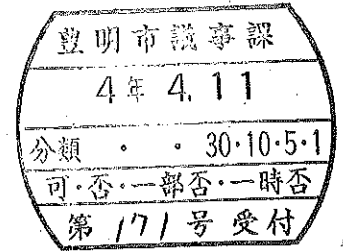 豊明市議事課
4年 4.11
分類 ・ ・ 30・10・5・1
可・否・一部否・一時否
第171号受付